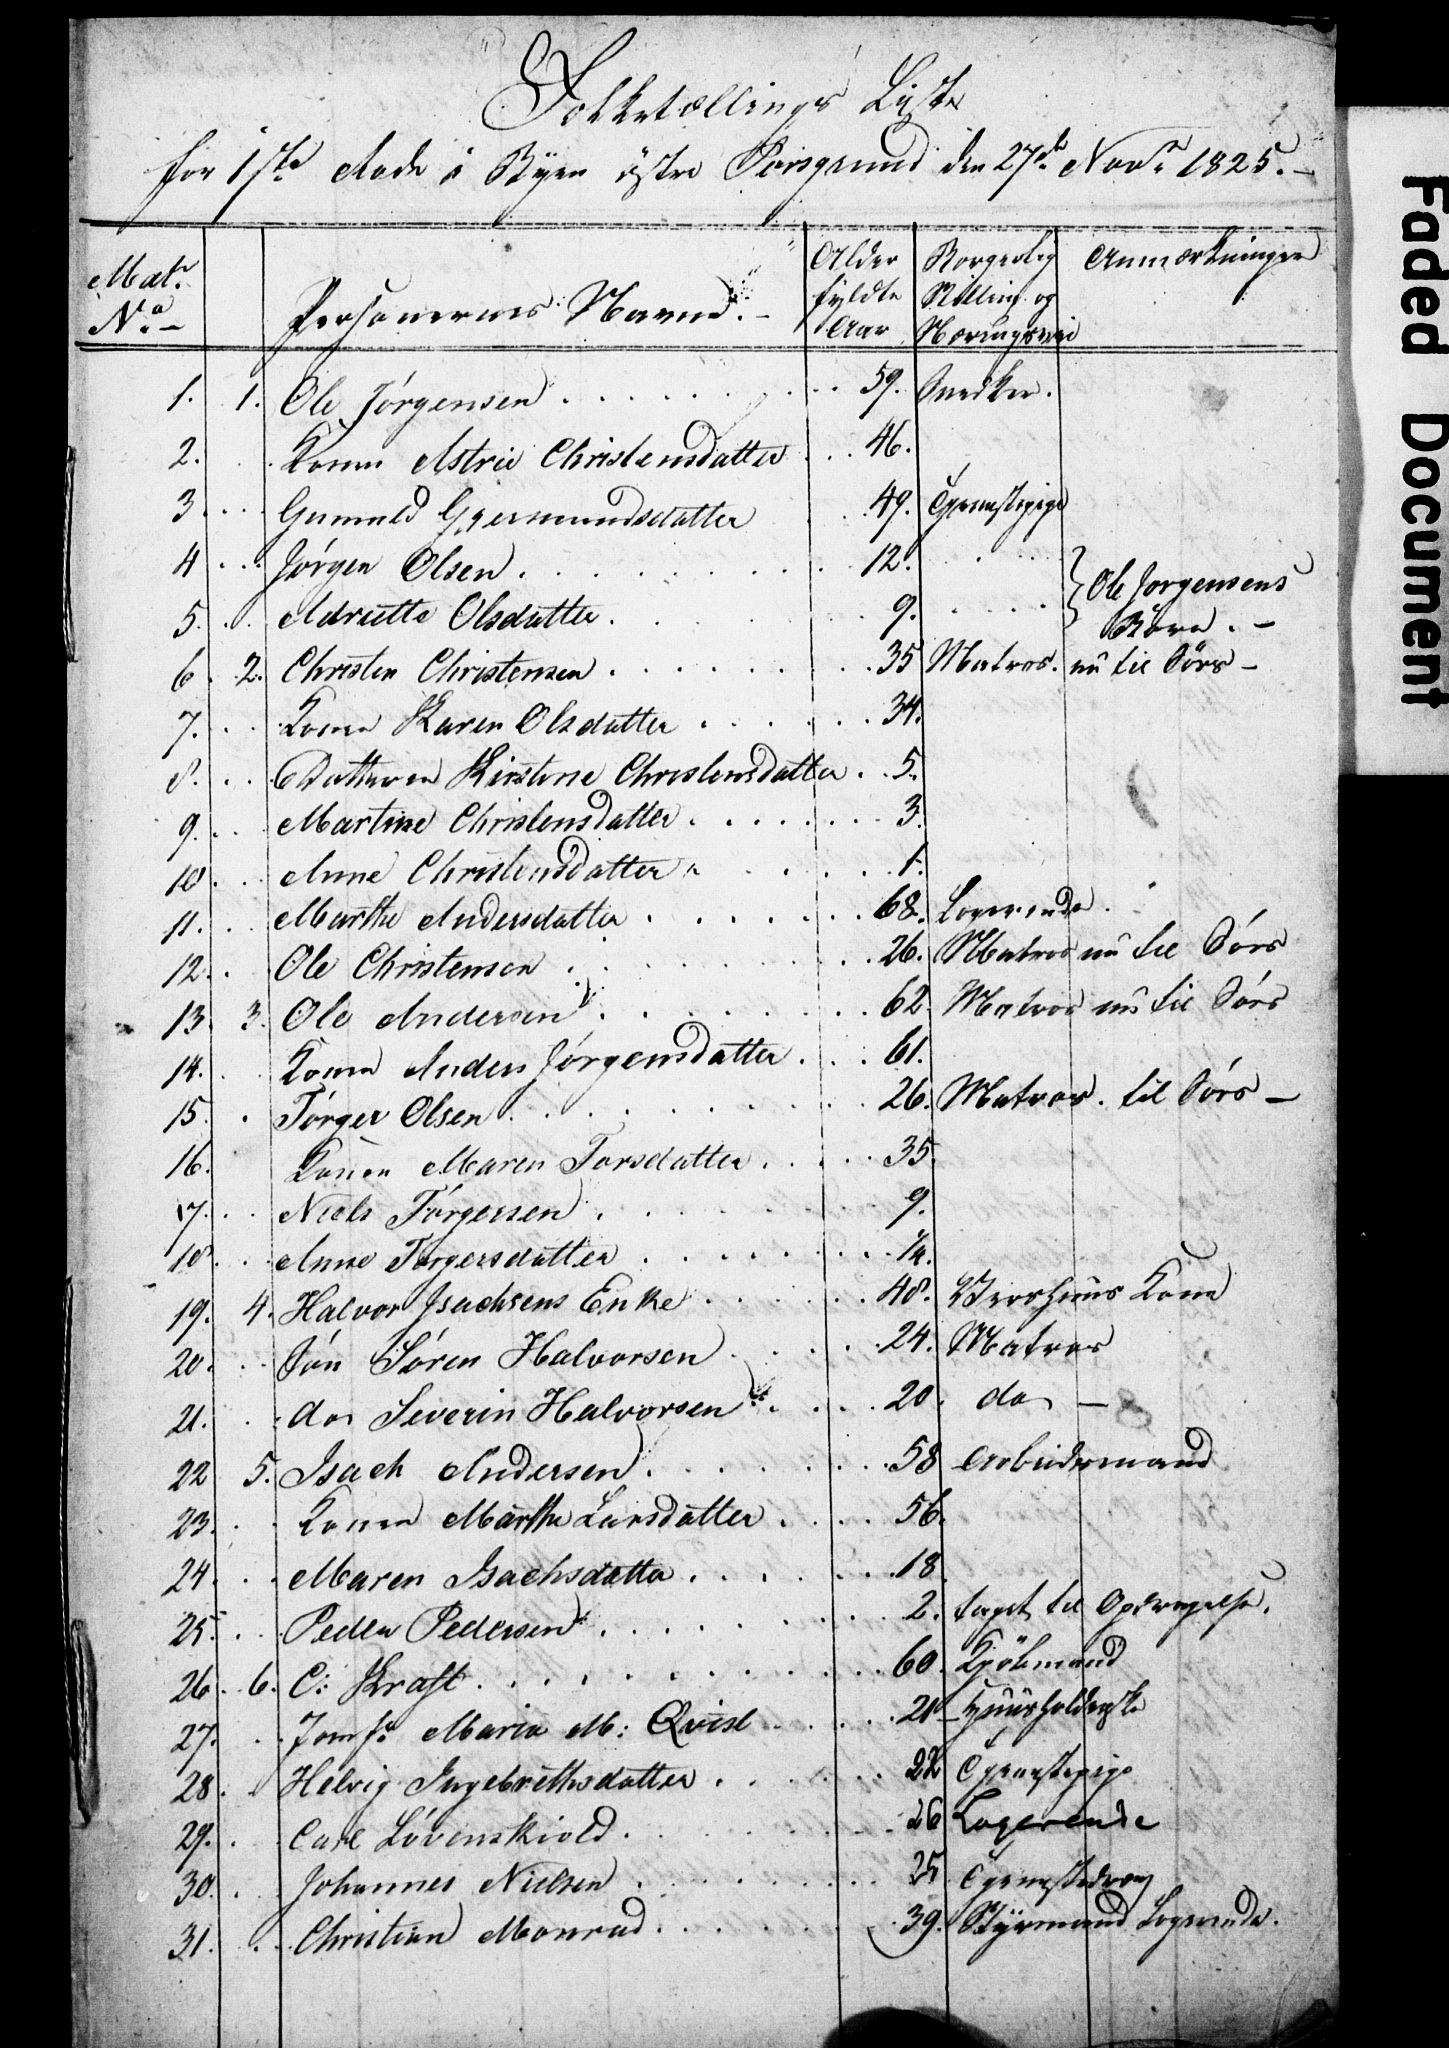 Folketællings Liste
for 1ste Rode i Byen östre Porsgrund den 27de Novr 1825. -
Mat. No - Personernes Navne. - Alder fyldte Aar Borgerlig Stilling og Næringsvei Anmærkninger
1. 1. Ole Jörgensen 59. Snedker.
2. Konen Astrie Christensdatter 46.
3. Gunnild Gjermundsdatter 49. Tjenestepige
4 Jörgen Olsen 12. } Ole Jorgensens
5. Adriette Olsdatter 9. Börn. -
6 2. Christen Christensen 35 Matros. nu til Söes -
7. Konen Karen Olsdatter 34.
8. Datteren Kirstine Christensdatter 5.
9. Martine Christensdatter 3.
10 Anne Christensdatter 1.
11. Marthe Andersdatter 68. Logerende.
12. Ole Christensen 26. Matros nu til Söes
13. 3. Ole Andersen 62. Matros nu til Söes
14. Konen Anders Jörgensdatter 61.
15. Törger Olsen 26. Matros. til Söes -
16. Konen Maren Torsdatter 35.
17. Niels Törgersen 9.
18. Anne Törgersdatter 1/4.
19. 4. Halvor Isachsens Enke 48. Vertshuus Kone
20. Sön Sören Halvorsen 24. Matros
21. do Severin Halvorsen 20. do -
22 5. Isach Andersen 58 Arbeidsmand
23. Konen Marthe Larsdatter 56.
24. Maren Isachsdatter 18
25. Peder Pedersen 2. taget til Opdragelse.
26. 6. C: Kraft 60. Kjöbmand
27. Jomfr Maria M: Qvist 21 Huusholderske
28. Helvig Ingebrethsdatter 22 Tjenestepige
29. Carl Lövenskiold 26 Logerende
30. Johannes Nielsen 25 Tjenestedreng
31. Christian Monrad 39. Styrmand Logerende.
Faded Document